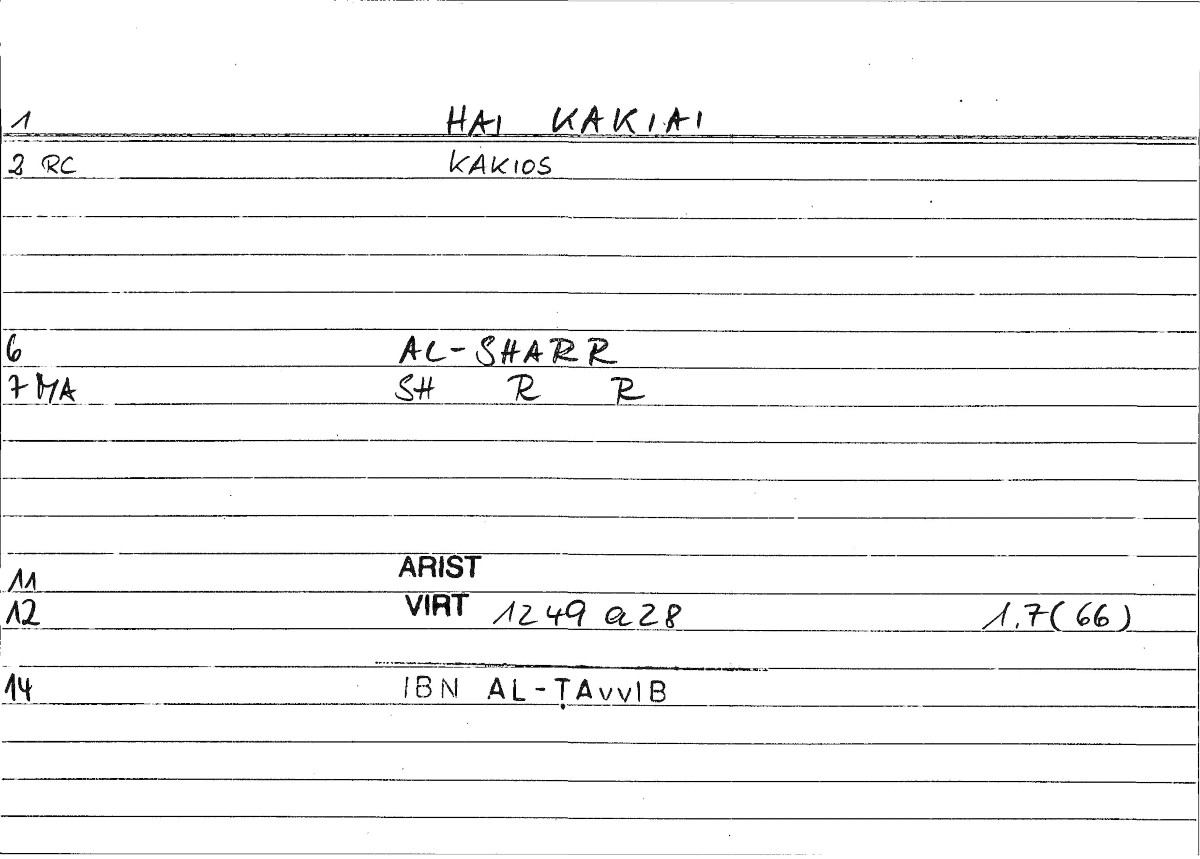 1 HAI KAKIAI
2 RC KAKIOS
6 AL-SHARR
7 MA SH R R
11 ARIST
12 VIRT 1249 a28 1.7(66)
14 IBN AL-ṬAvvIB